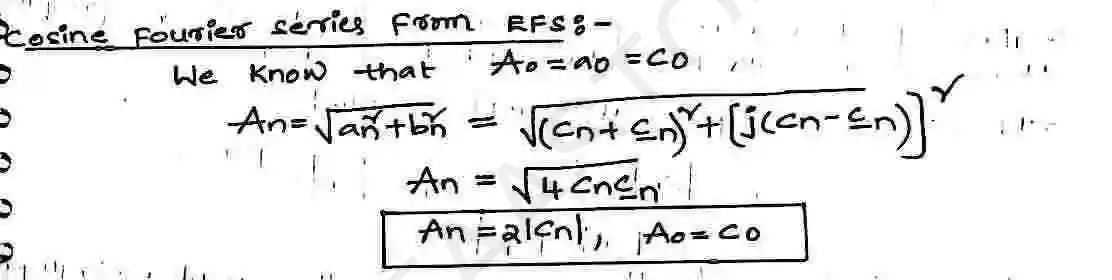 Cosine Fourier series from EFS:-
We know that A₀ = a₀ = C₀
Aₙ = √(aₙ² + bₙ²) = √((Cₙ + C₋ₙ)² + [j(Cₙ - C₋ₙ)]²)
Aₙ = √(4 Cₙ C₋ₙ)
Aₙ = 2|Cₙ|, A₀ = C₀